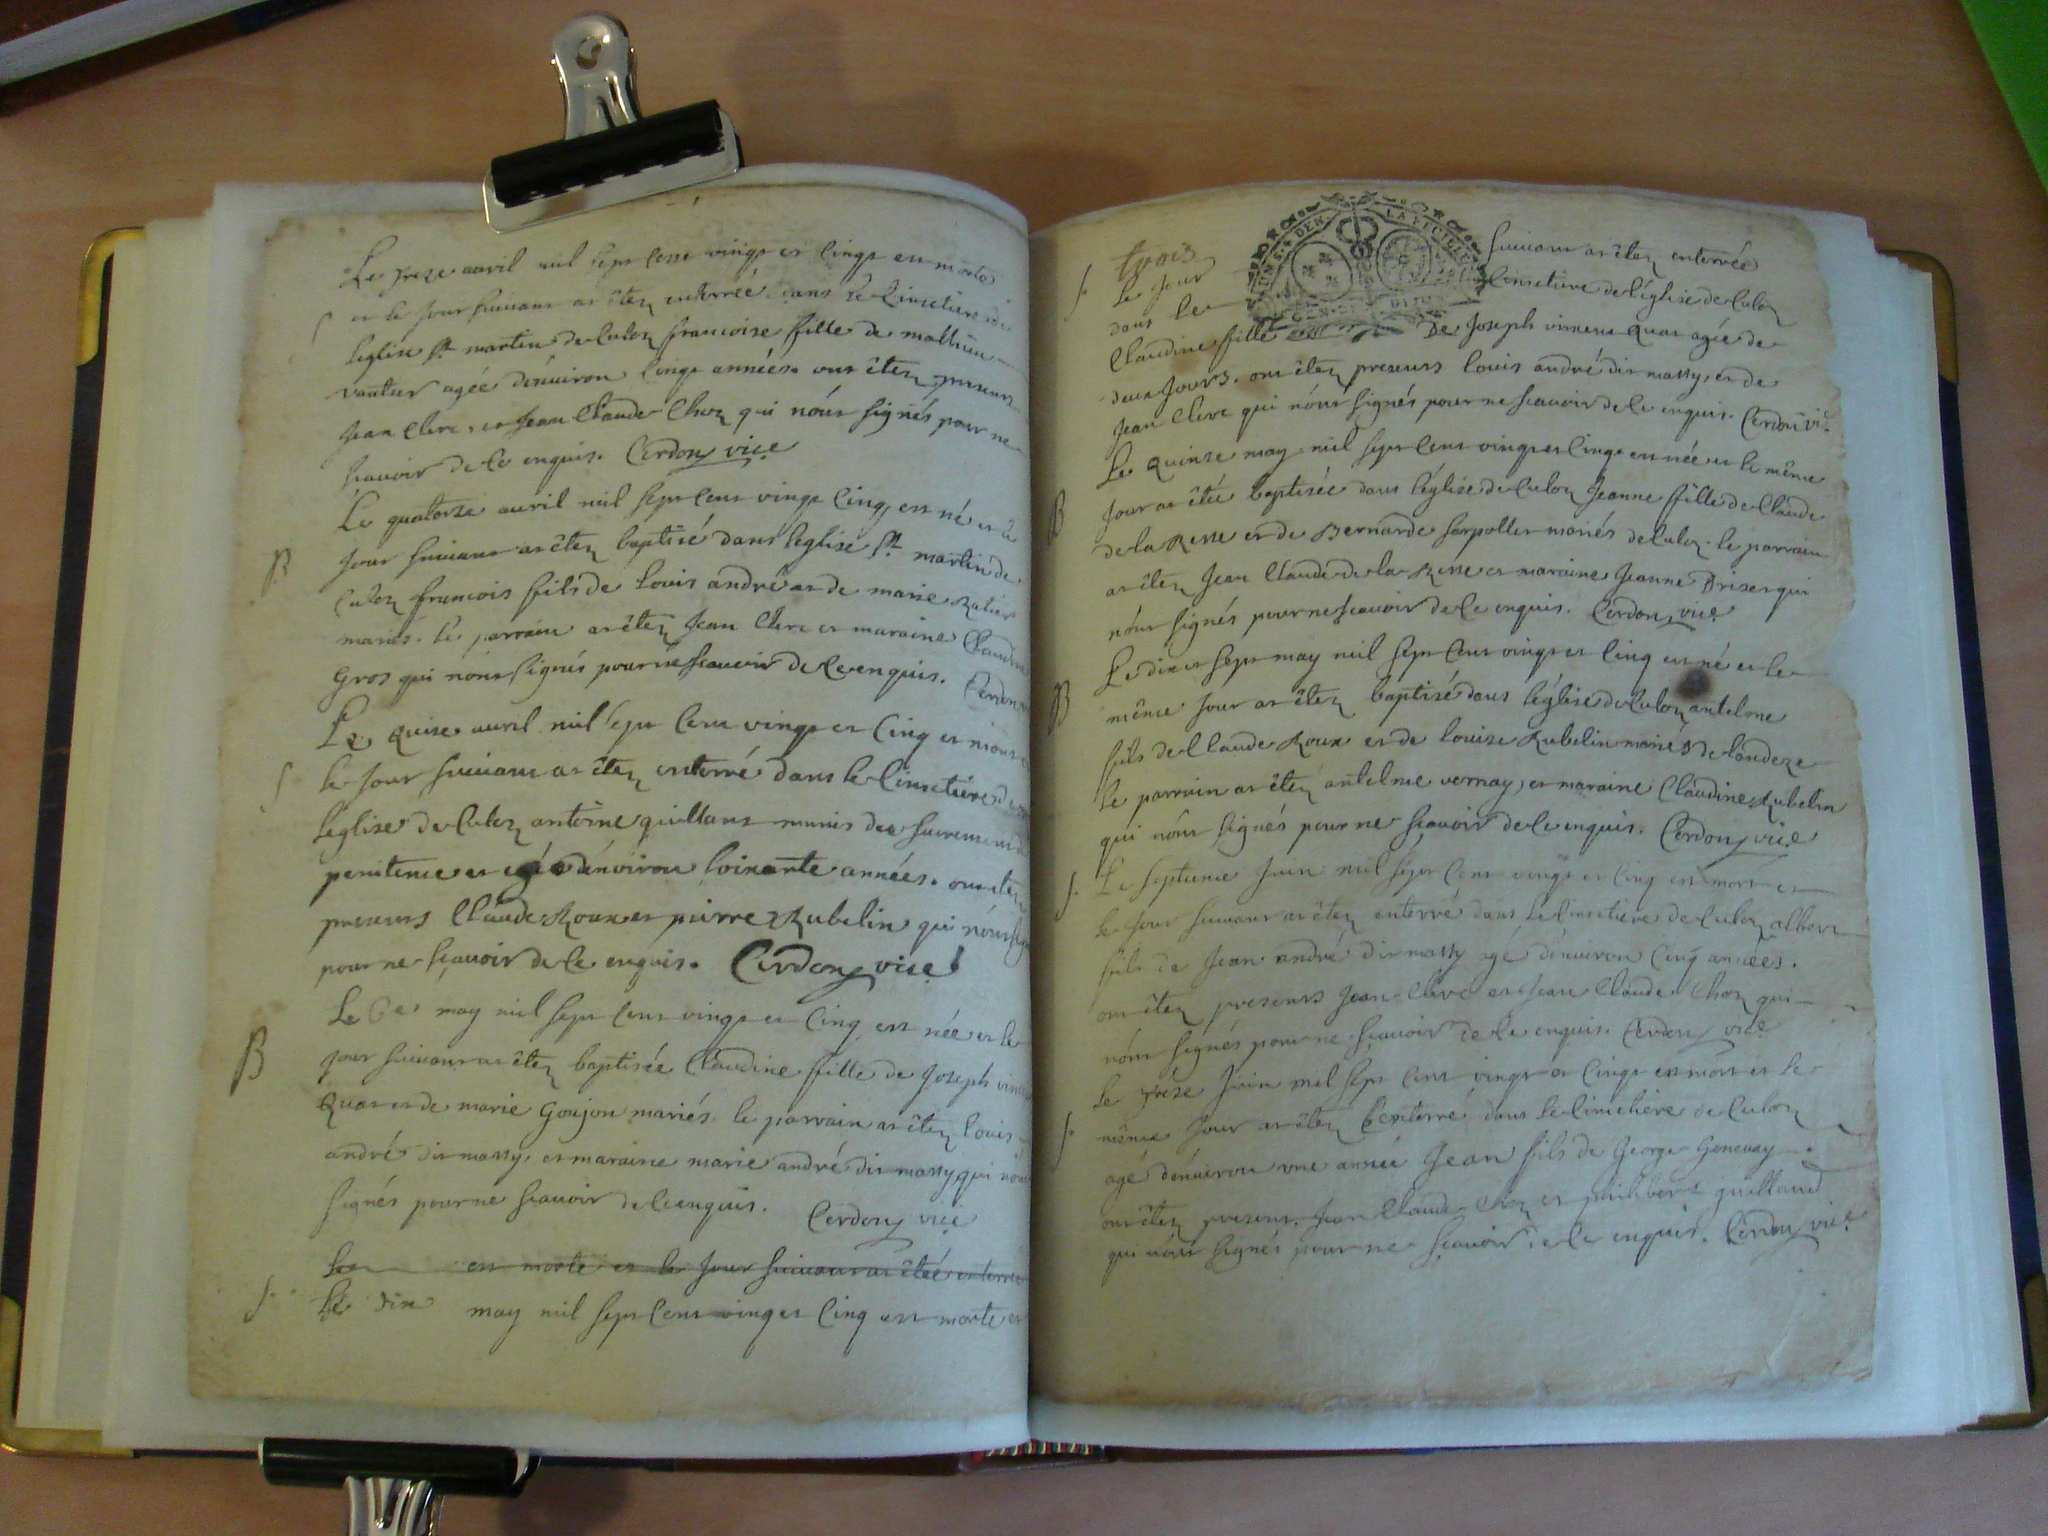 Le treze avril mil sept cent vingt et cinq est morte
et le jour suivant at êtez enterrée dans le cimetiere de
leglise st martin de Culoz francoise fille de mathieu
vantier agée denviron cinq années. ont êtez presents
Jean Clerc, et Jean Claude Choz qui nónt signés pour ne
scauoir de ce enquis. Cerdon vice
Le quatorze avril mil sept cent vingt cinq est né et le
jour suivant at êtez baptisé dans léglise st martin de
Culoz francois fils de louis andré et de marie Ratier
mariés. le parrain at êtez Jean Clerc et maraine Claudine
Gros qui nónt signés pour ne scauoir de ce enquis. Cerdon
Le quise avril mil sept cent vingt et cinq et mort
le jour suivant at êtez enterré dans le cimetiere de
léglise de Culoz antoine quillant munis des sacrements de
penitence et agé denviron soixante années. ont êtez
presents Claude Roux et pierre Rubelin qui nónt sig
pour ne scauoir de ce enquis. Cerdon vice
Le may mil sept cent vingt et cinq est née et le
jour suivant at êtez baptisée Claudine fille de Joseph vin
quat et de marie Goujon mariés. le parrain at êtez louis
andré dit massy, et maraine marie andré dit massy qui nón
signés pour ne scauoir de ce enquis. Cerdon vice
Le est morte et le jour suivant at êtée enterrée
Le dix may mil sept cent vingt et cinq est morte et
trois
le jour suivant at êtez enterrée
dans le cimetiere de léglise de Culoz
Claudine fille De Joseph quat agée de
deux jours. ont êtez presents louis andré dit massy, et de
Jean Clerc qui nónt signés pour ne scauoir de ce enquis. Cerdon vi.
Le quinze may mil sept cent vingt et cinq est née et le même
jour at êtée baptisée dans léglise de Culoz Jeanne fille de Claude
de la Resse et de Bernarde Serpollet mariés de Culoz. le parrain
at êtez Jean Claude de la Resse et maraine Jeanne Brizet qui
nónt signés pour ne scauoir de ce enquis. Cerdon vice
Le dix et sept may mil sept cent vingt et cinq est né et le
même jour at êtez baptisé dans léglise de Culoz antelme
fils de Claude Roux et de louise Rubelin mariés de landeze
le parrain at êtez antelme vernay, et maraine Claudine Rubelin
qui nónt signés pour ne scauoir de ce enquis. Cerdon vice
Le septieme Juin mil sept cent vingt et cinq est mort et
le jour suivant at êtez enterré dans le cimetiere de Culoz albert
fils de Jean andré dit massy agé denviron cinq années.
ont êtez presents Jean Clerc et Jean Claude Choz qui
nónt signés pour ne scauoir de ce enquis. Cerdon vice
Le treze Juin mil sept cent vingt et cinq est mort et le
même jour at êtez enterré dans le cimetière de Culoz
agé denviron une année Jean fils de George Genevay
ont êtez present, Jean Claude Choz et philibert guilland
qui nónt signés pour ne scauoir de ce enquis. Cerdon vice